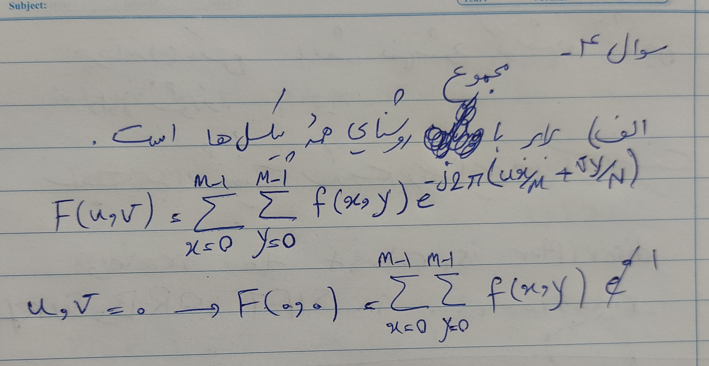 Subject:
سوال ۴-
مجموع
الف) برابر با روشنای همه پیکسل‌ها است.
F(u,v) = Σ_{x=0}^{M-1} Σ_{y=0}^{M-1} f(x,y) e^{-j2π(ux/M + vy/N)}
u,v = 0 → F(0,0) = Σ_{x=0}^{M-1} Σ_{y=0}^{M-1} f(x,y) e 1